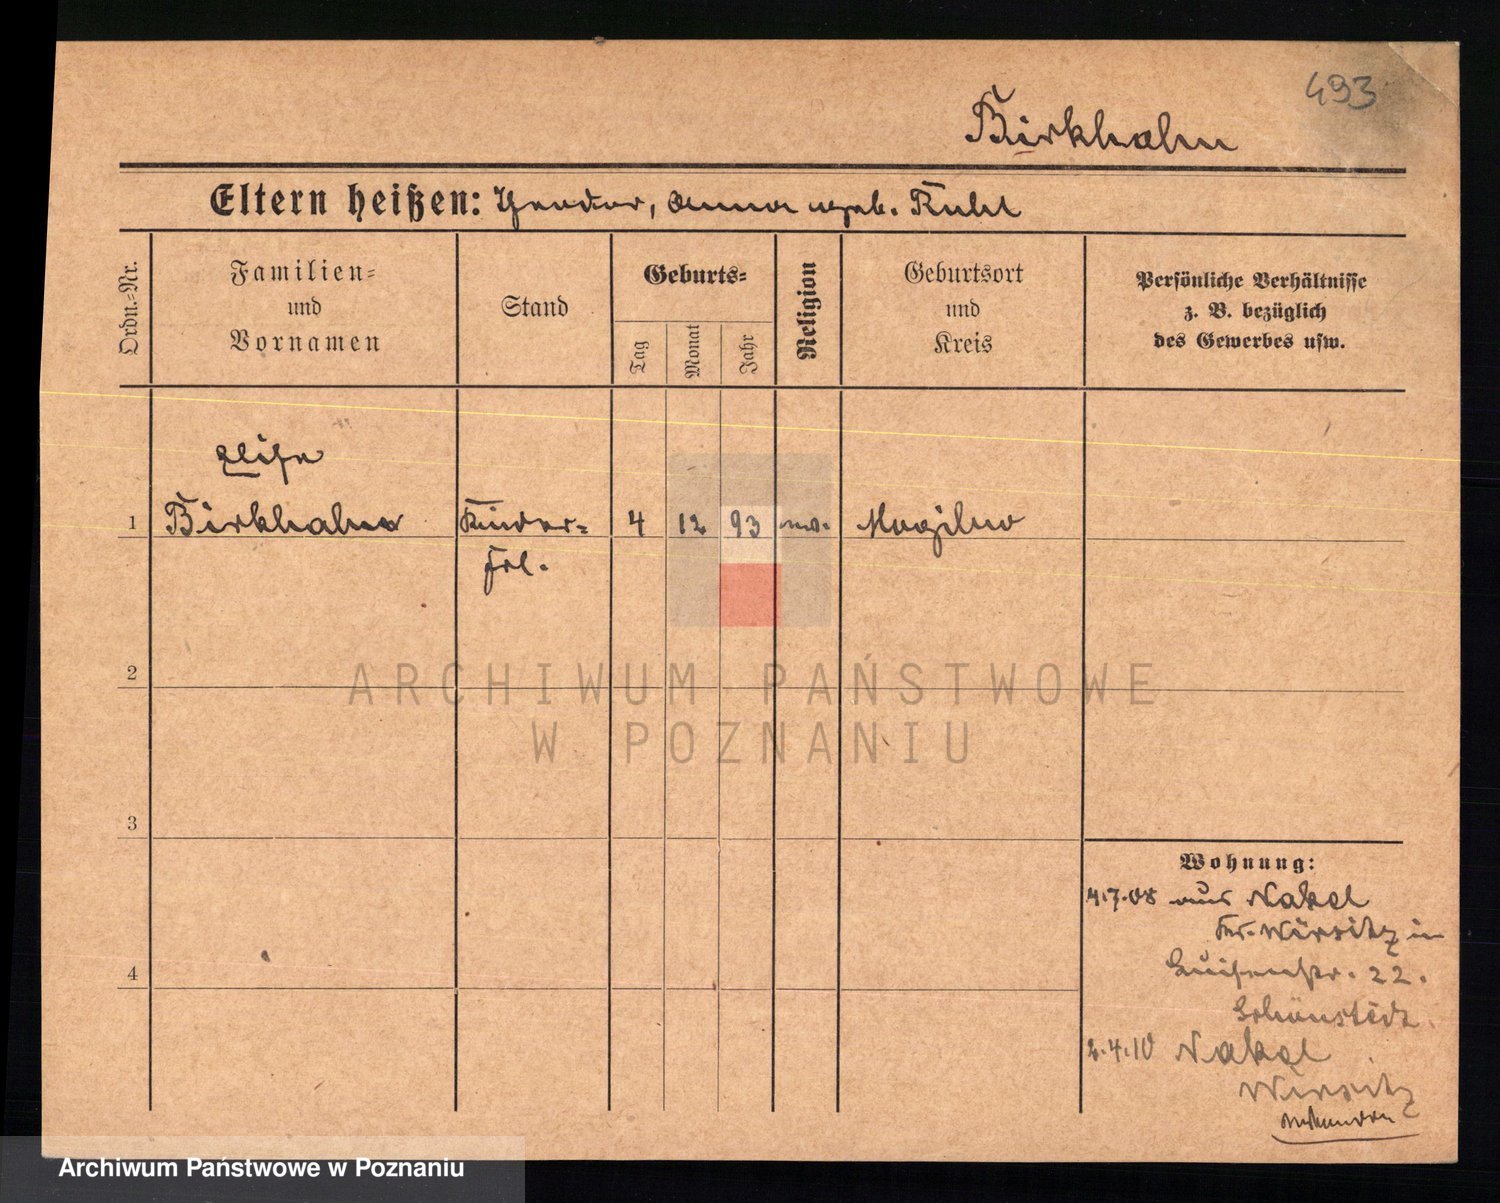 493
Birkhahn
Eltern heißen: Theodor, Anna geb. Kuhl
Ordn.-Nr.
Familien-
und
Vornamen
Stand
Geburts-
Tag
Monat
Jahr
Religion
Geburtsort
und
Kreis
Persönliche Verhältnisse
z. B. bezüglich
des Gewerbes usw.
Elise
1 Birkhahn Kinder- 4 12 93 Mogilno
Frl.
2
3
4
Wohnung:
4.7.08 aus Nakel
Kr. Wirsitz in
Luisenstr. 22.
Schönstedt.
2.4.10 Nakel
Wirsitz
ARCHIWUM PAŃSTWOWE
W POZNANIU
Archiwum Państwowe w Poznaniu